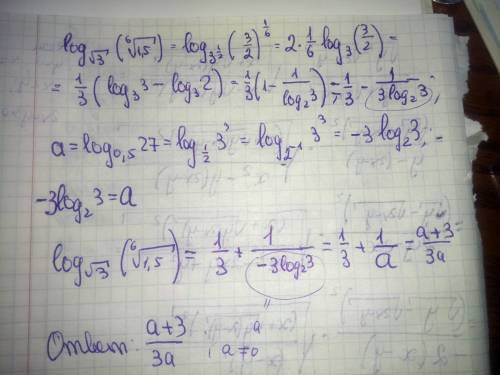 log_{√3} (⁶√1,5) = log_{3^{1/2}} (3/2)^{1/6} = 2 · 1/6 log₃ (3/2) =
= 1/3 (log₃ 3 − log₃ 2) = 1/3 (1 − 1/log₂ 3) = 1/3 − 1/(3log₂ 3) ;
a = log_{0,5} 27 = log_{1/2} 3³ = log_{2⁻¹} 3³ = −3log₂ 3 ;
−3log₂ 3 = a
log_{√3} (⁶√1,5) = 1/3 + 1/(−3log₂ 3) = 1/3 + 1/a = (a+3)/3a
Ответ: (a+3)/3a